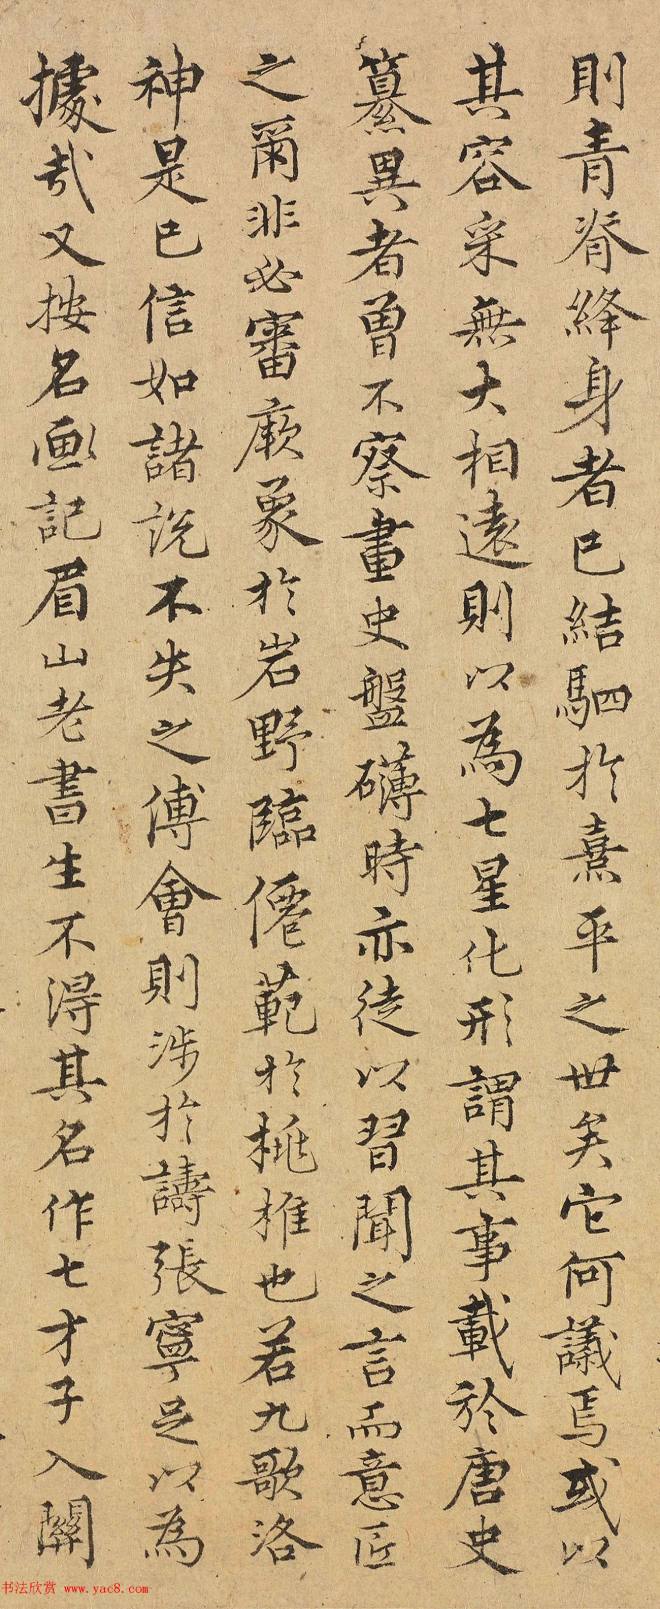 則青脊絳身者已結駟於熹平之世矣它何議焉或以
其容采無大相遠則以為七星化形謂其事載於唐史
纂異者曾不察畫史盤礴時亦徒以習聞之言而意匠
之爾非必審厥象於岩野臨僊範於桃椎也若九歌洛
神是已信如諸說不失之傅會則涉於譸張寧足以為
據哉又按名畫記眉山老書生不得其名作七才子入關
书法欣赏 www.yac8.com